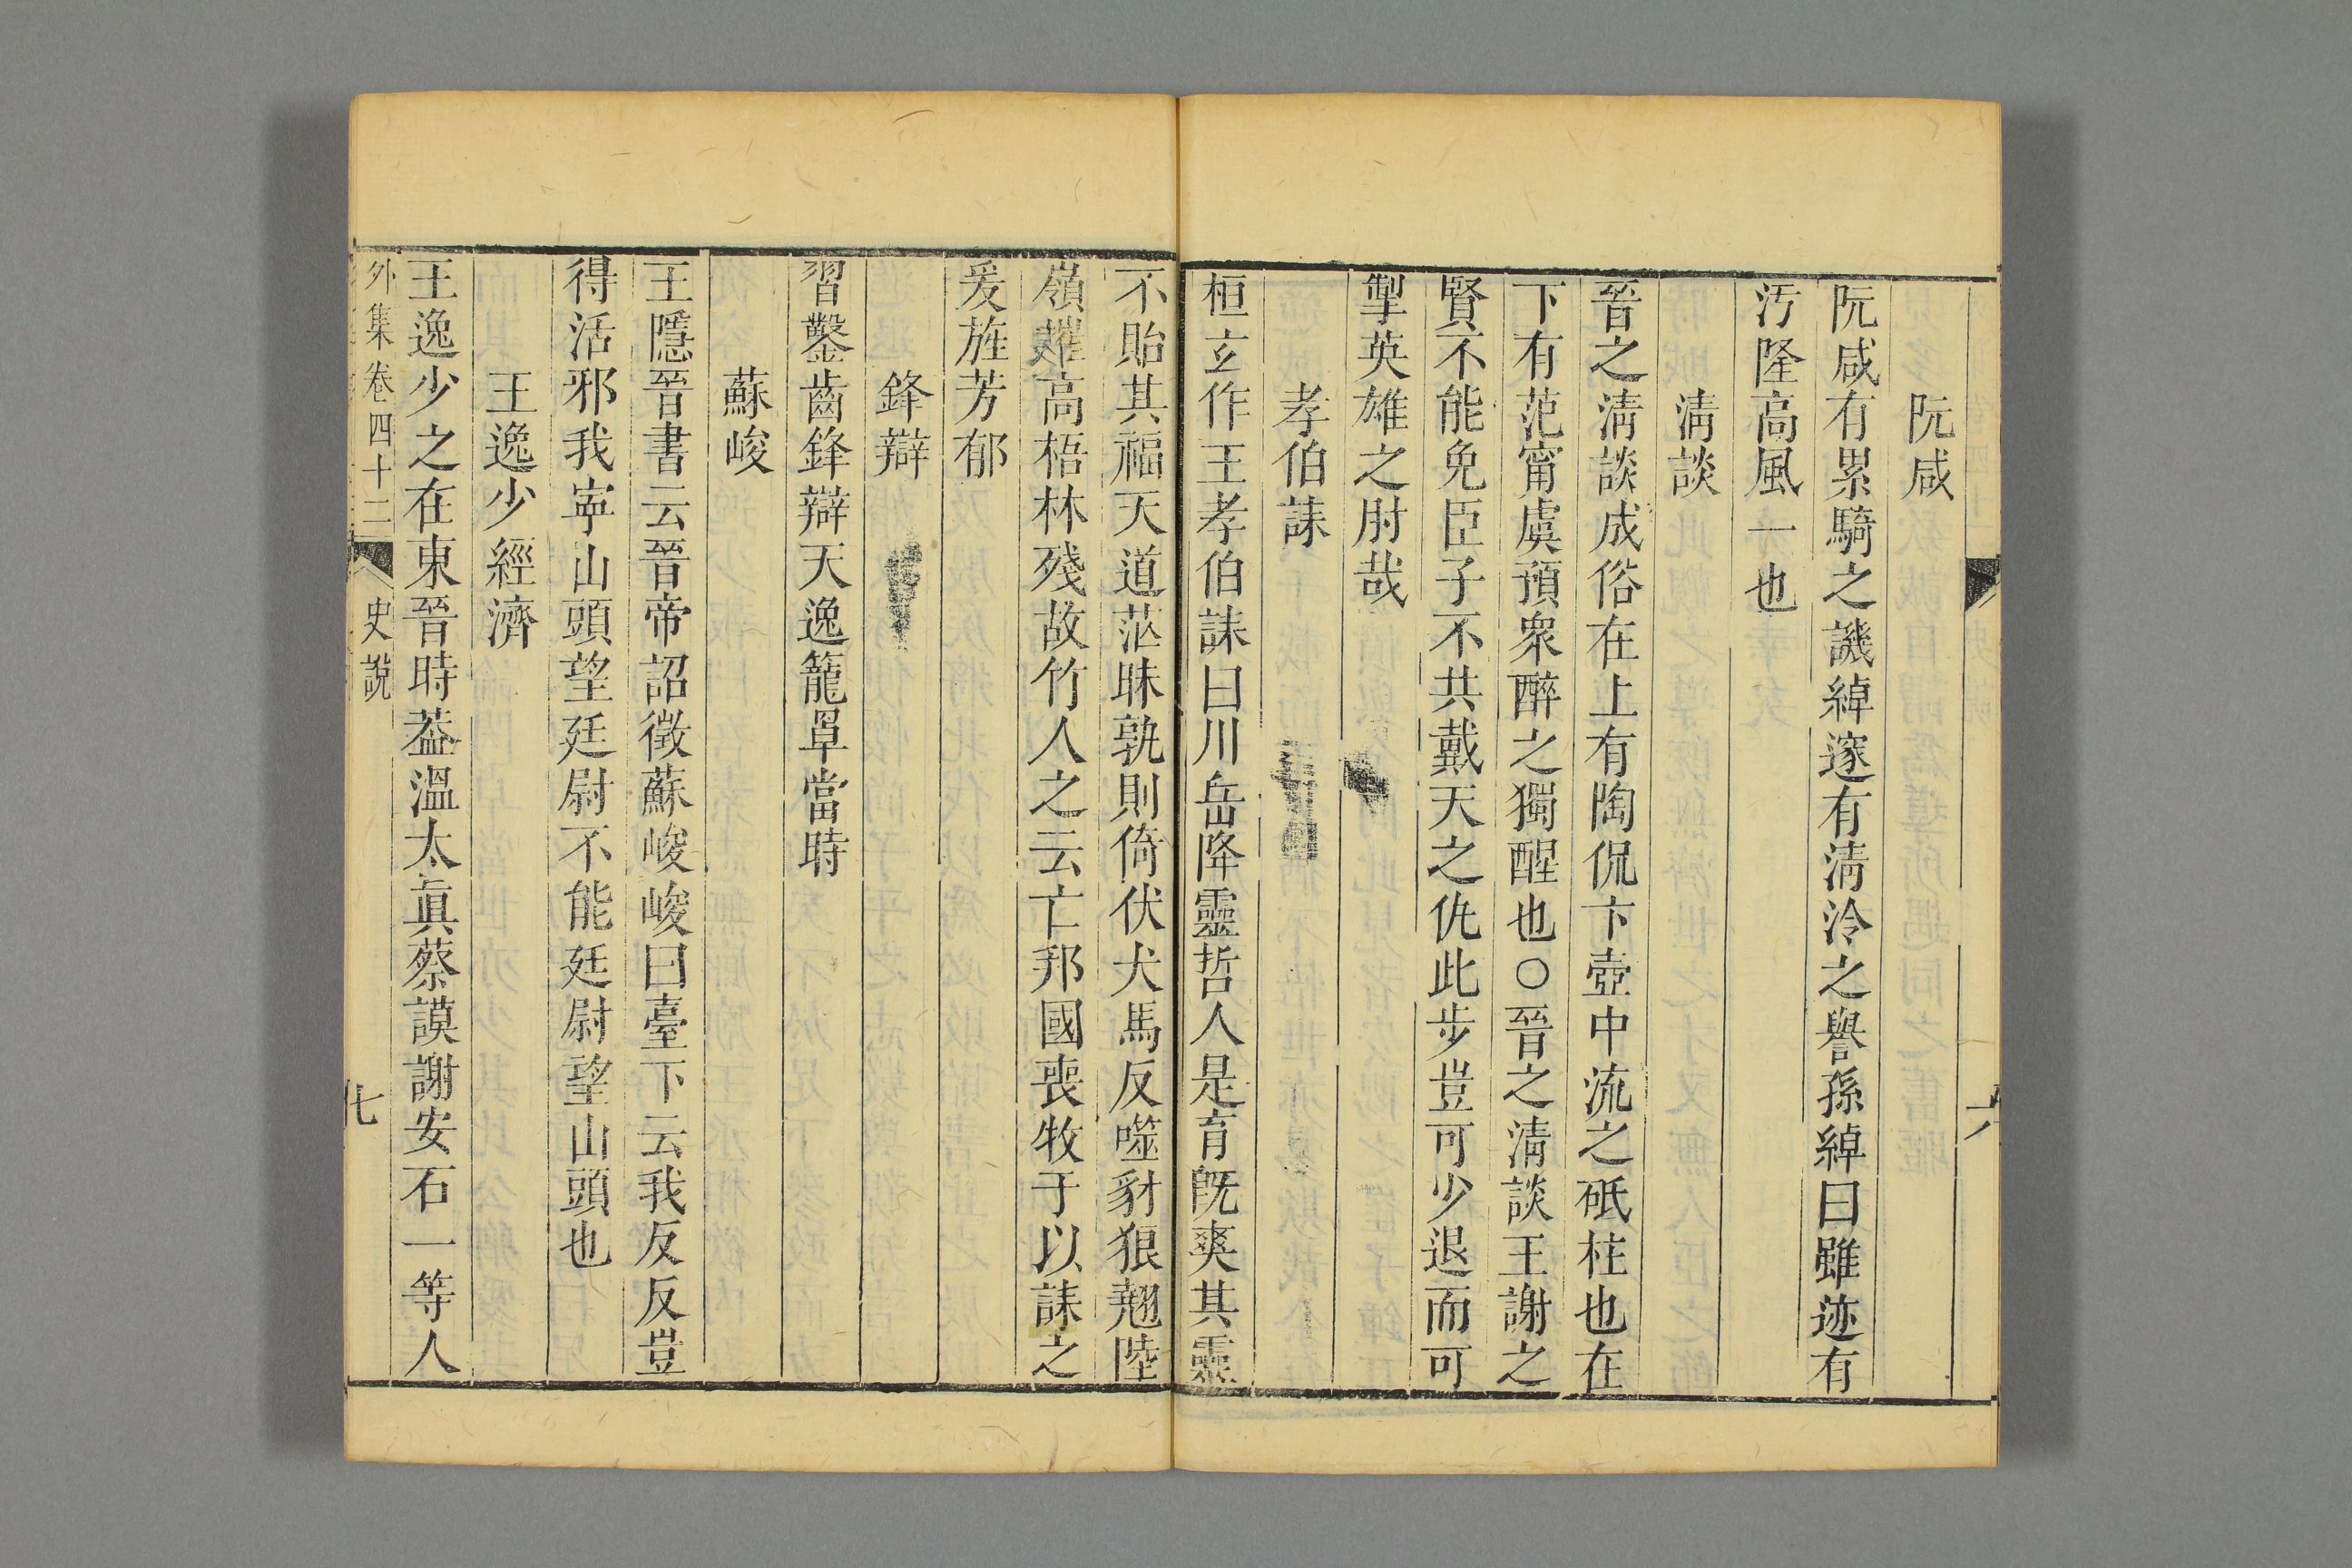 六
阮咸
阮咸有累騎之譏綽邃有淸泠之譽孫綽曰雖迹有
汚隆高風一也
淸談
晉之淸談成俗在上有陶侃卞壺中流之砥柱也在
下有范甯虞預衆醉之獨醒也○晉之淸談王謝之
賢不能免臣子不共戴天之仇此步豈可少退而可
掣英雄之肘哉
孝伯誄
桓玄作王孝伯誄曰川岳降靈哲人是育旣爽其靈
不貽其福天道茫昧孰則倚伏犬馬反噬豺狼翹陸
嶺摧高梧林殘故竹人之云亡邦國喪牧于以誄之
爰旌芳郁
鋒辯
習鑿齒鋒辯天逸籠罩當時
蘇峻
王隱晉書云晉帝詔徵蘇峻峻曰臺下云我反反豈
得活邪我寧山頭望廷尉不能廷尉望山頭也
王逸少經濟
王逸少之在東晉時葢溫太眞蔡謨謝安石一等人
外集卷四十二
史說
七